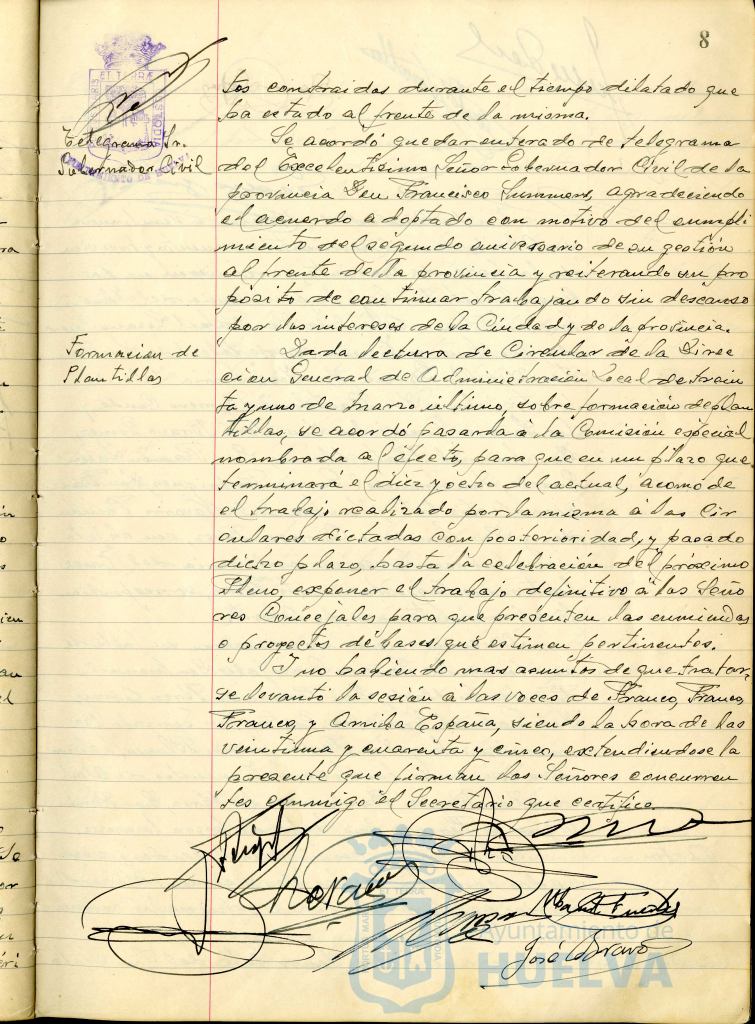 8
tos contraidos durante el tiempo dilatado que
ha estado al frente de la misma.
Telegrama Sr.
Gobernador Civil
Se acordó quedar enterado de telegrama
del Excelentisimo Señor Gobernador Civil de la
provincia Don Francisco Summers, agradeciendo
el acuerdo adoptado con motivo del cumpli
miento del segundo aniversario de su gestión
al frente de la provincia y reiterando su pro
pósito de continuar trabajando sin descanso
por los intereses de la Ciudad y de la provincia.
Formacion de
Plantillas
Dada lectura de Circular de la Direc
cion General de Administración Local de trein
ta y uno de marzo último, sobre formación de plan
tillas, se acordó pasarla á la Comisión especial
nombrada al efecto, para que en un plazo que
terminará el diez y ocho del actual, acomode
el trabajo realizado por la misma á las Cir
culares dictadas con posterioridad, y pasado
dicho plazo, hasta la celebración del próximo
Pleno, exponer el trabajo definitivo á los Seño
res Concejales para que presenten las enmiendas
o proyectos de bases que estimen pertinentes.
Y no habiendo mas asuntos de que tratar,
se levantó la sesión a las voces de Franco, Franco,
Franco, y Arriba España, siendo la hora de las
veintiuna y cuarenta y cinco, extendiendose la
presente que firman los Señores concurren
tes conmigo el Secretario que certifico.
José Bravo
Ayuntamiento de
HUELVA